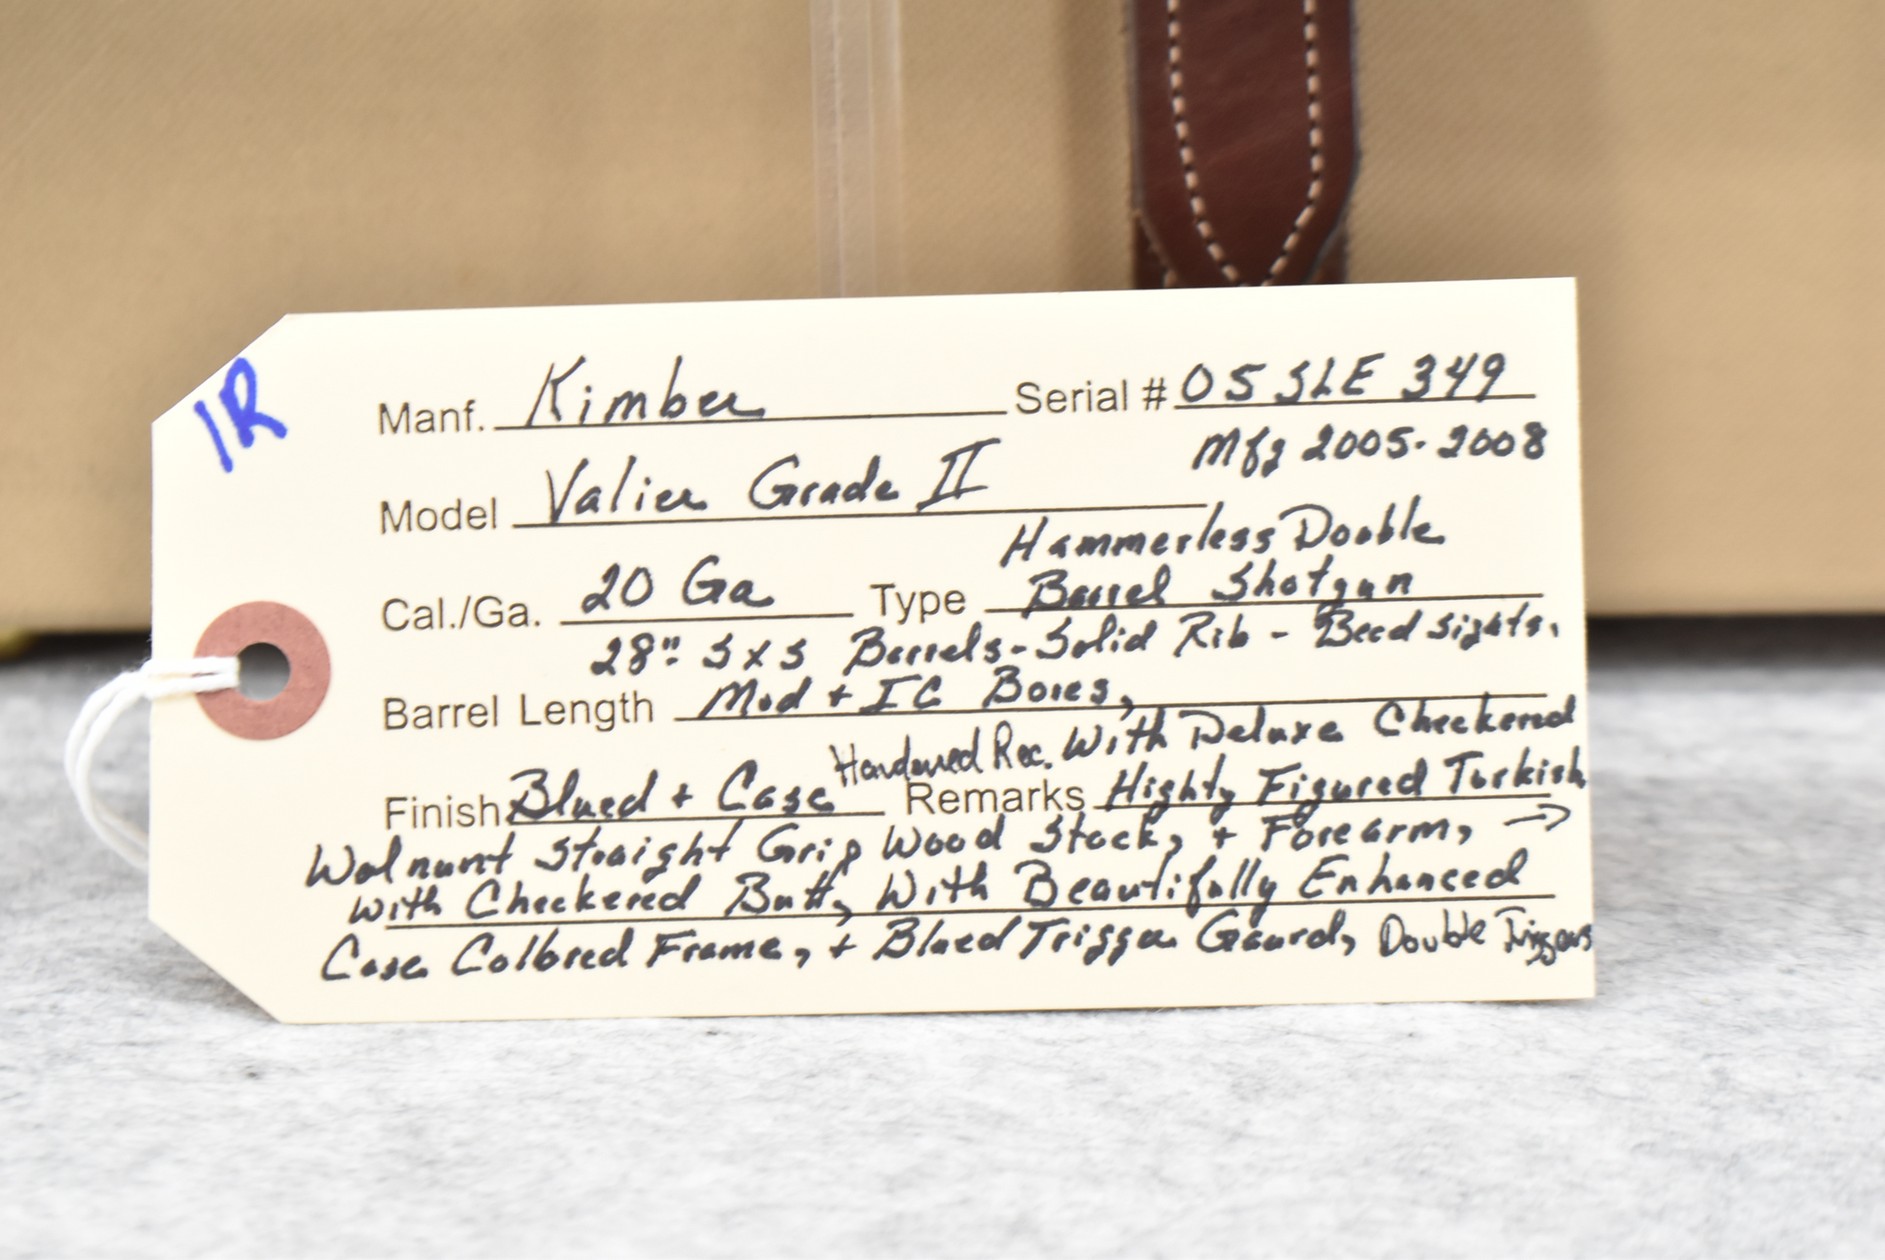 1R
Manf. Kimber Serial # 05 SLE 349
Mfg 2005-2008
Model Valier Grade II
Hammerless Double
Cal./Ga. 20 Ga Type Barrel Shotgun
28" S x S Barrels - Solid Rib - Bead sights.
Barrel Length Mod + IC Bores,
Hardened Rec. With Deluxe Checkered
Finish Blued + Case Remarks Highty Figured Turkish
Walnunt Straight Grip Wood Stock, + Forearm, →
with Checkered Butt, With Beautifully Enhanced
Case Colored Frame, + Blued Trigger Gaurd, Double Triggers